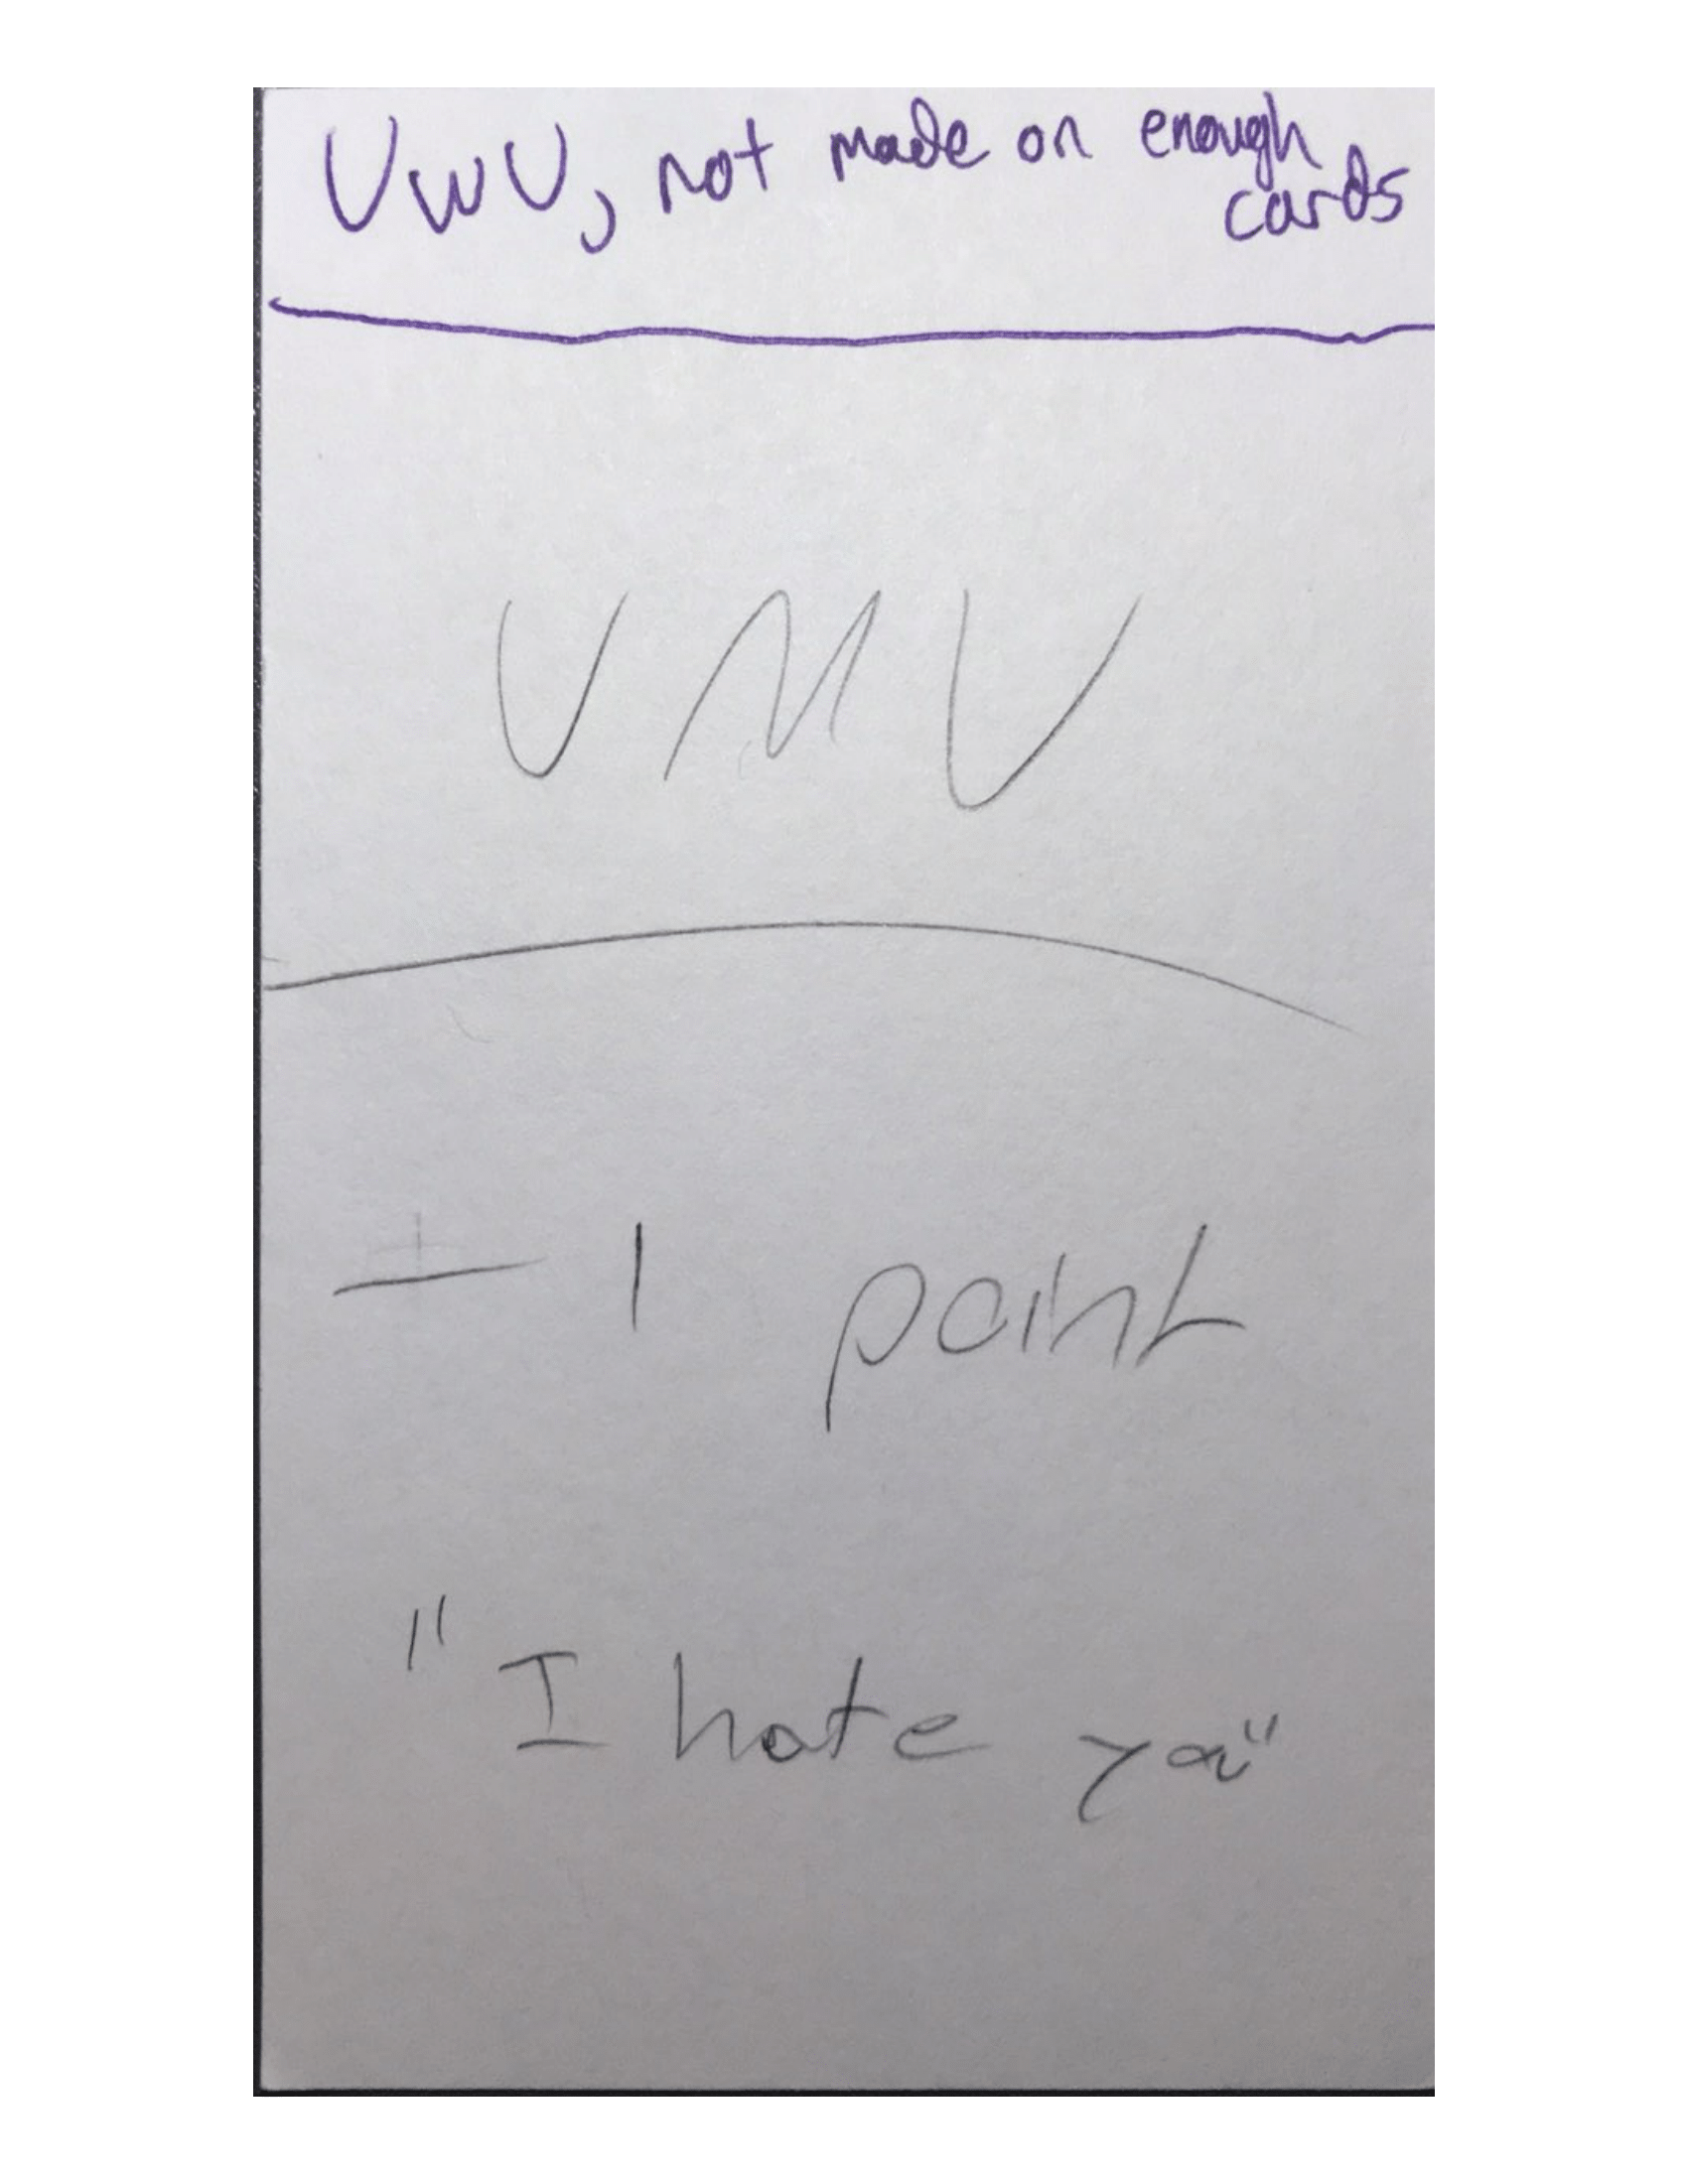 UwU, not made on enough
cards
UMU
- 1 point
"I hate you"